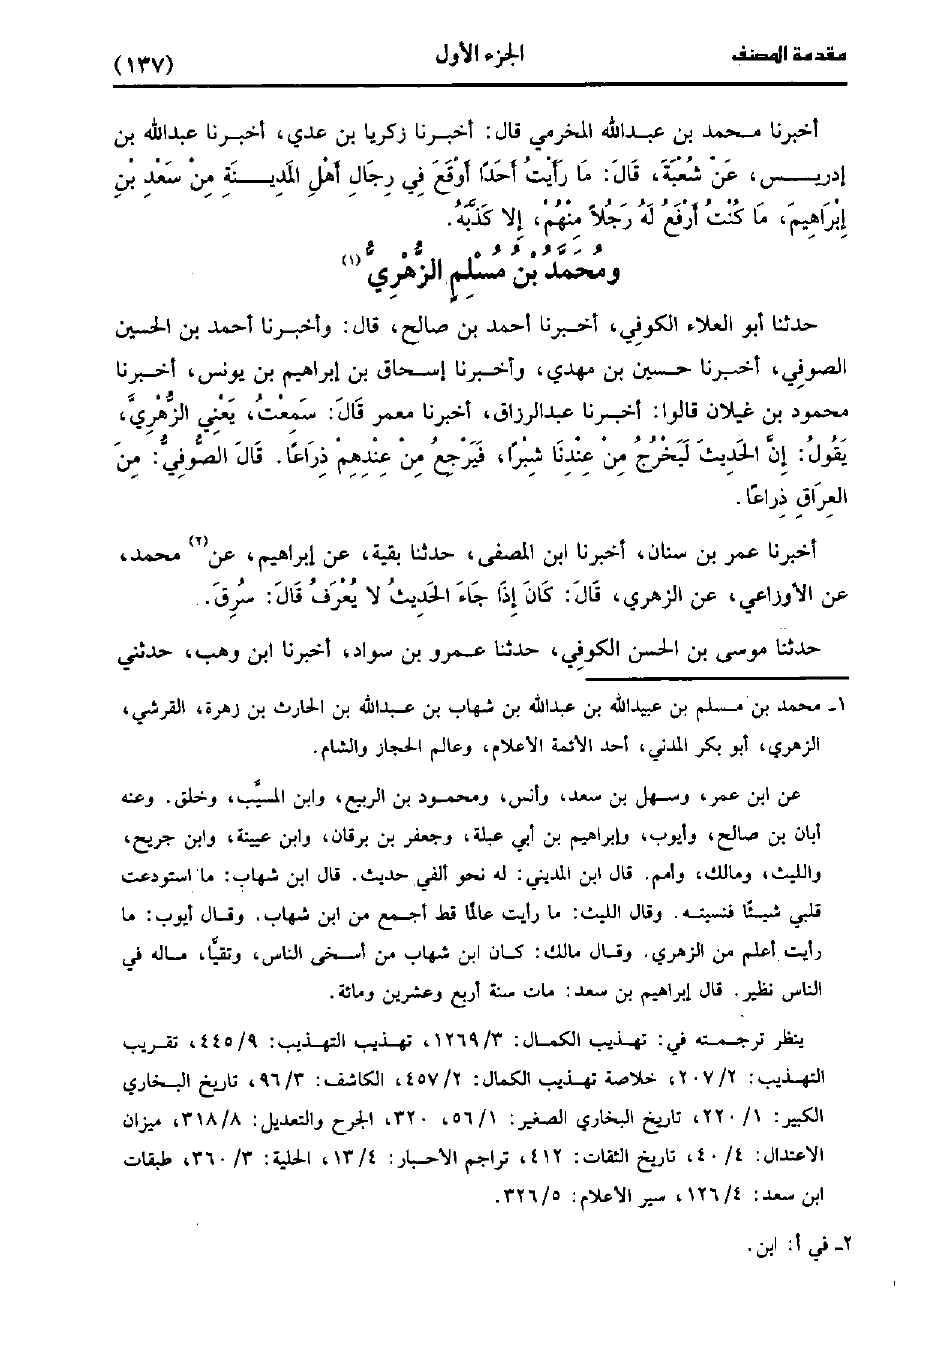 مقدمة المصنف
الجزء الأول
(١٣٧)
أخبرنا محمد بن عبدالله المخرمي قال: أخبرنا زكريا بن عدي، أخبرنا عبدالله بن
إدريس، عَنْ شُعْبَةَ، قَالَ: مَا رَأَيْتُ أَحَدًا أَوْقَعَ فِي رِجَالِ أَهْلِ الْمَدِينَةِ مِنْ سَعْدِ بْنِ
إِبْرَاهِيمَ، مَا كُنْتُ أَرْفَعُ لَهُ رَجُلاً مِنْهُمْ، إِلا كَذَّبَهُ.
وَمُحَمَّدُ بْنُ مُسْلِمٍ الزُّهْرِيُّ(١)
حدثنا أبو العلاء الكوفي، أخبرنا أحمد بن صالح، قال: وأخبرنا أحمد بن الحسين
الصوفي، أخبرنا حسين بن مهدي، وأخبرنا إسحاق بن إبراهيم بن يونس، أخبرنا
محمود بن غيلان قالوا: أخبرنا عبدالرزاق، أخبرنا معمر قَالَ: سَمِعْتُ، يَعْنِي الزُّهْرِيَّ،
يَقُولُ: إِنَّ الْحَدِيثَ لَيَخْرُجُ مِنْ عِنْدِنَا شِبْرًا، فَيَرْجِعُ مِنْ عِنْدِهِمْ ذِرَاعًا. قَالَ الصُّوفِيُّ: مِنَ
الْعِرَاقِ ذِرَاعًا.
أخبرنا عمر بن سنان، أخبرنا ابن المصفى، حدثنا بقية، عن إبراهيم، عن(٢) محمد،
عن الأوزاعي، عن الزهري، قَالَ: كَانَ إِذَا جَاءَ الْحَدِيثُ لا يُعْرَفُ قَالَ: سُرِقَ.
حدثنا موسى بن الحسن الكوفي، حدثنا عمرو بن سواد، أخبرنا ابن وهب، حدثني
١- محمد بن مسلم بن عبيدالله بن عبدالله بن شهاب بن عبدالله بن الحارث بن زهرة، القرشي،
الزهري، أبو بكر المدني، أحد الأئمة الأعلام، وعالم الحجاز والشام.
عن ابن عمر، وسهل بن سعد، وأنس، ومحمود بن الربيع، وابن المسيَّب، وخلق. وعنه
أبان بن صالح، وأيوب، وإبراهيم بن أبي عبلة، وجعفر بن برقان، وابن عيينة، وابن جريج،
والليث، ومالك، وأمم. قال ابن المديني: له نحو ألفي حديث. قال ابن شهاب: ما استودعت
قلبي شيئًا فنسيته. وقال الليث: ما رأيت عالمًا قط أجمع من ابن شهاب. وقال أيوب: ما
رأيت أعلم من الزهري. وقال مالك: كان ابن شهاب من أسخى الناس، وتقيًّا، ماله في
الناس نظير. قال إبراهيم بن سعد: مات سنة أربع وعشرين ومائة.
ينظر ترجمته في: تهذيب الكمال: ١٢٦٩/٣، تهذيب التهذيب: ٤٤٥/٩، تقريب
التهذيب: ٢٠٧/٢، خلاصة تهذيب الكمال: ٤٥٧/٢، الكاشف: ٩٦/٣، تاريخ البخاري
الكبير: ٢٢٠/١، تاريخ البخاري الصغير: ٥٦/١، ٣٢٠، الجرح والتعديل: ٣١٨/٨، ميزان
الاعتدال: ٤٠/٤، تاريخ الثقات: ٤١٢، تراجم الأحبار: ١٣/٤، الحلية: ٣٦٠/٣، طبقات
ابن سعد: ١٢٦/٤، سير الأعلام: ٣٢٦/٥.
٢- في أ: ابن.